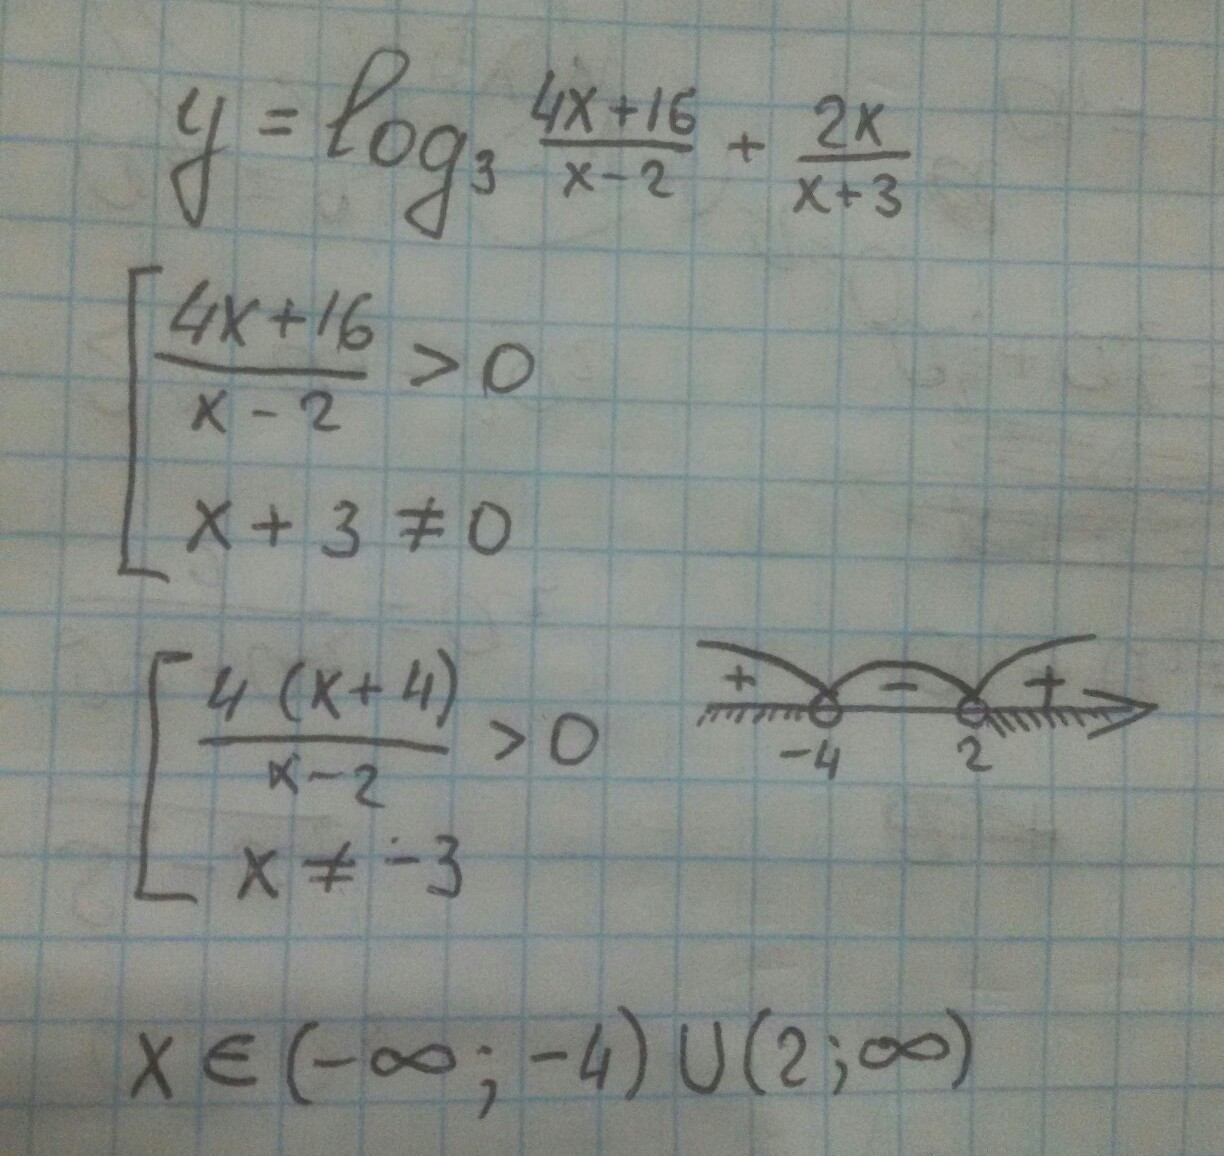 y = log₃ (4x+16)/(x-2) + 2x/(x+3)
[ (4x+16)/(x-2) > 0
x + 3 ≠ 0
[ 4(x+4)/(x-2) > 0
+ - +
-4 2
x ≠ -3
x ∈ (-∞; -4) ∪ (2; ∞)